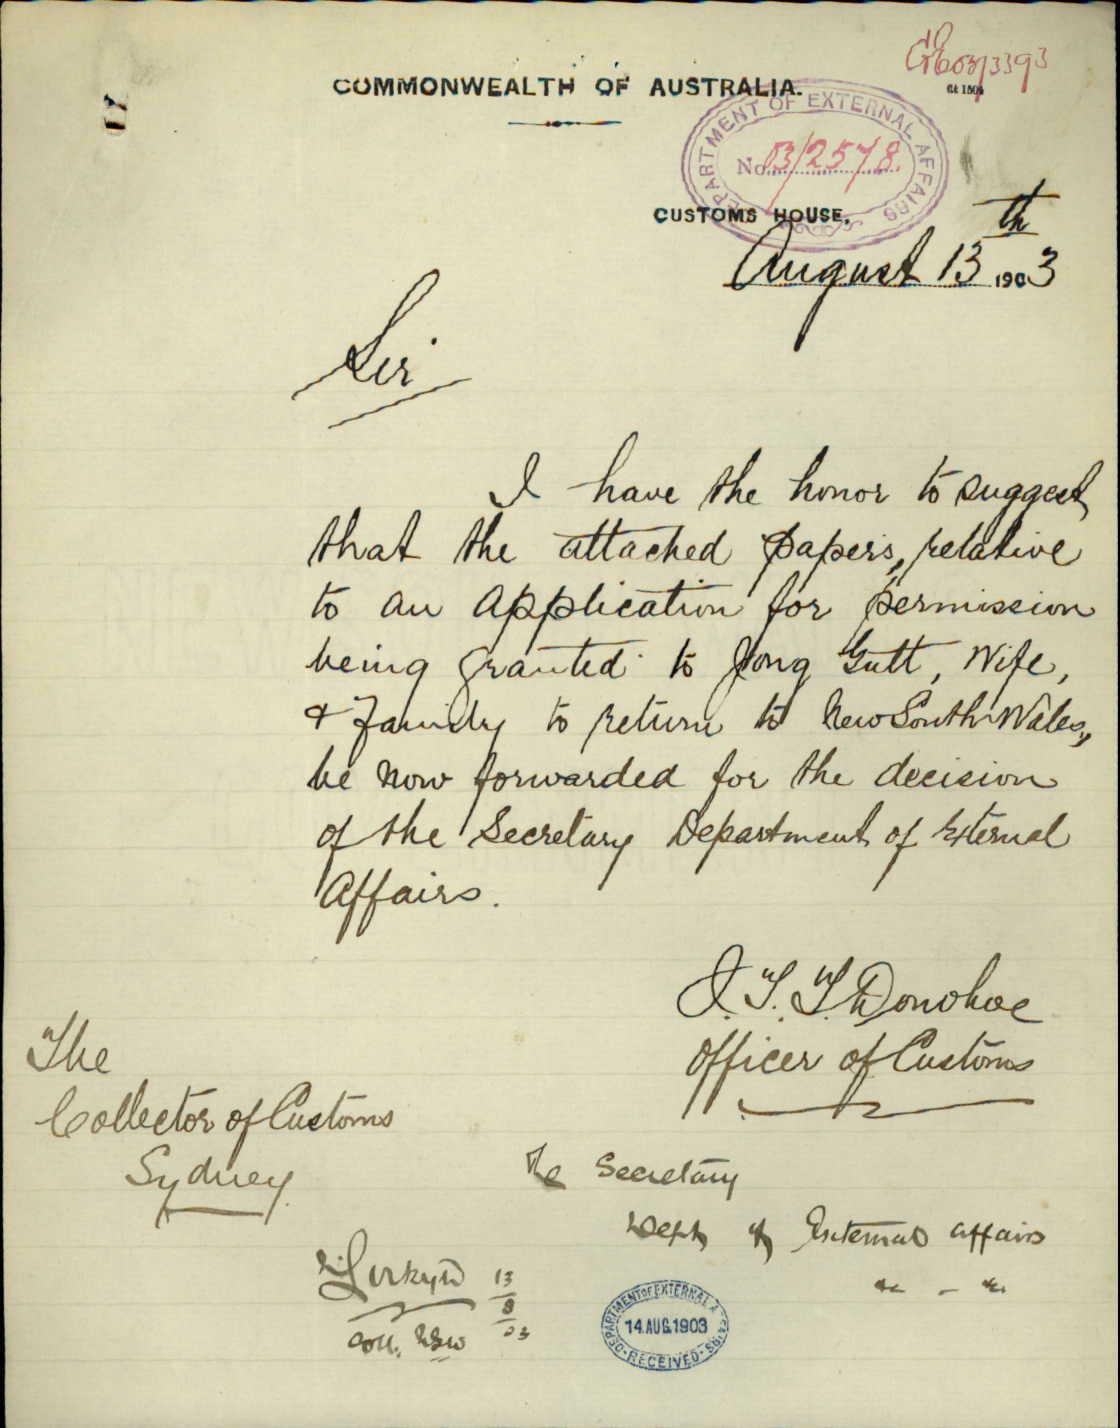 COMMONWEALTH OF AUSTRALIA.
DEPARTMENT OF EXTERNAL AFFAIRS
No. 03/2578.
CUSTOMS HOUSE,
August 13th 1903
Sir
I have the honor to suggest
that the attached papers, relative
to an Application for permission
being granted to Jong Gutt, Wife,
& Family to return to New South Wales,
be now forwarded for the decision
of the Secretary Department of External
Affairs.
J. T. T. Donohoe
Officer of Customs
The
Collector of Customs
Sydney
The Secretary
Dept of External Affairs
13
8
03
Coll. NSW
DEPARTMENT OF EXTERNAL AFFAIRS
14.AUG.1903
RECEIVED